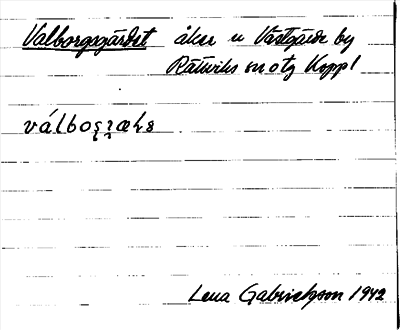 Valborgsgärdet åker u Västgärde by
Rättviks sn o tg Kopp l
válbos
Lena Gabrielsson 1942